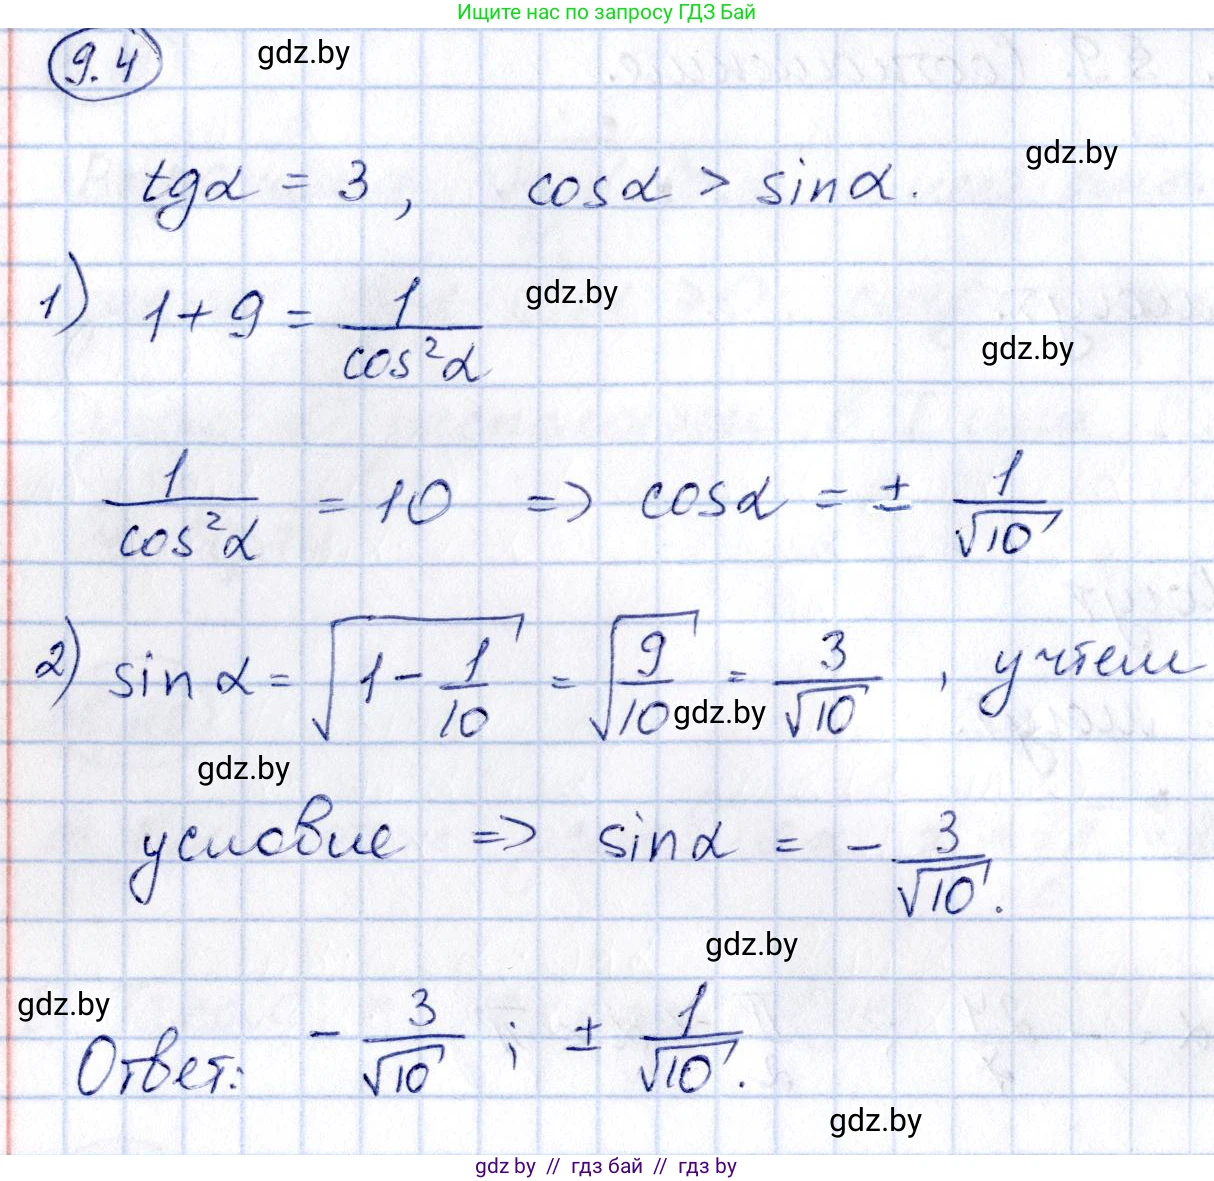 Ищите нас по запросу ГДЗ Бай
9.4
gdz.by
gdz.by
tgα = 3, cosα > sinα.
1) 1+9 = 1/cos²α
gdz.by
gdz.by
1/cos²α = 10 => cosα = ± 1/√10
2) sin α = √(1 - 1/10) = √(9/10) = 3/√10, учтем
gdz.by
gdz.by
условие => sinα = - 3/√10.
gdz.by
gdz.by
Ответ: - 3/√10 ; ± 1/√10.
gdz.by
gdz by // гдз бай // гдз by